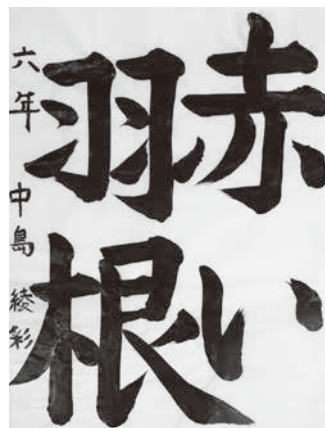 赤い
羽根
六年 中島綾彩